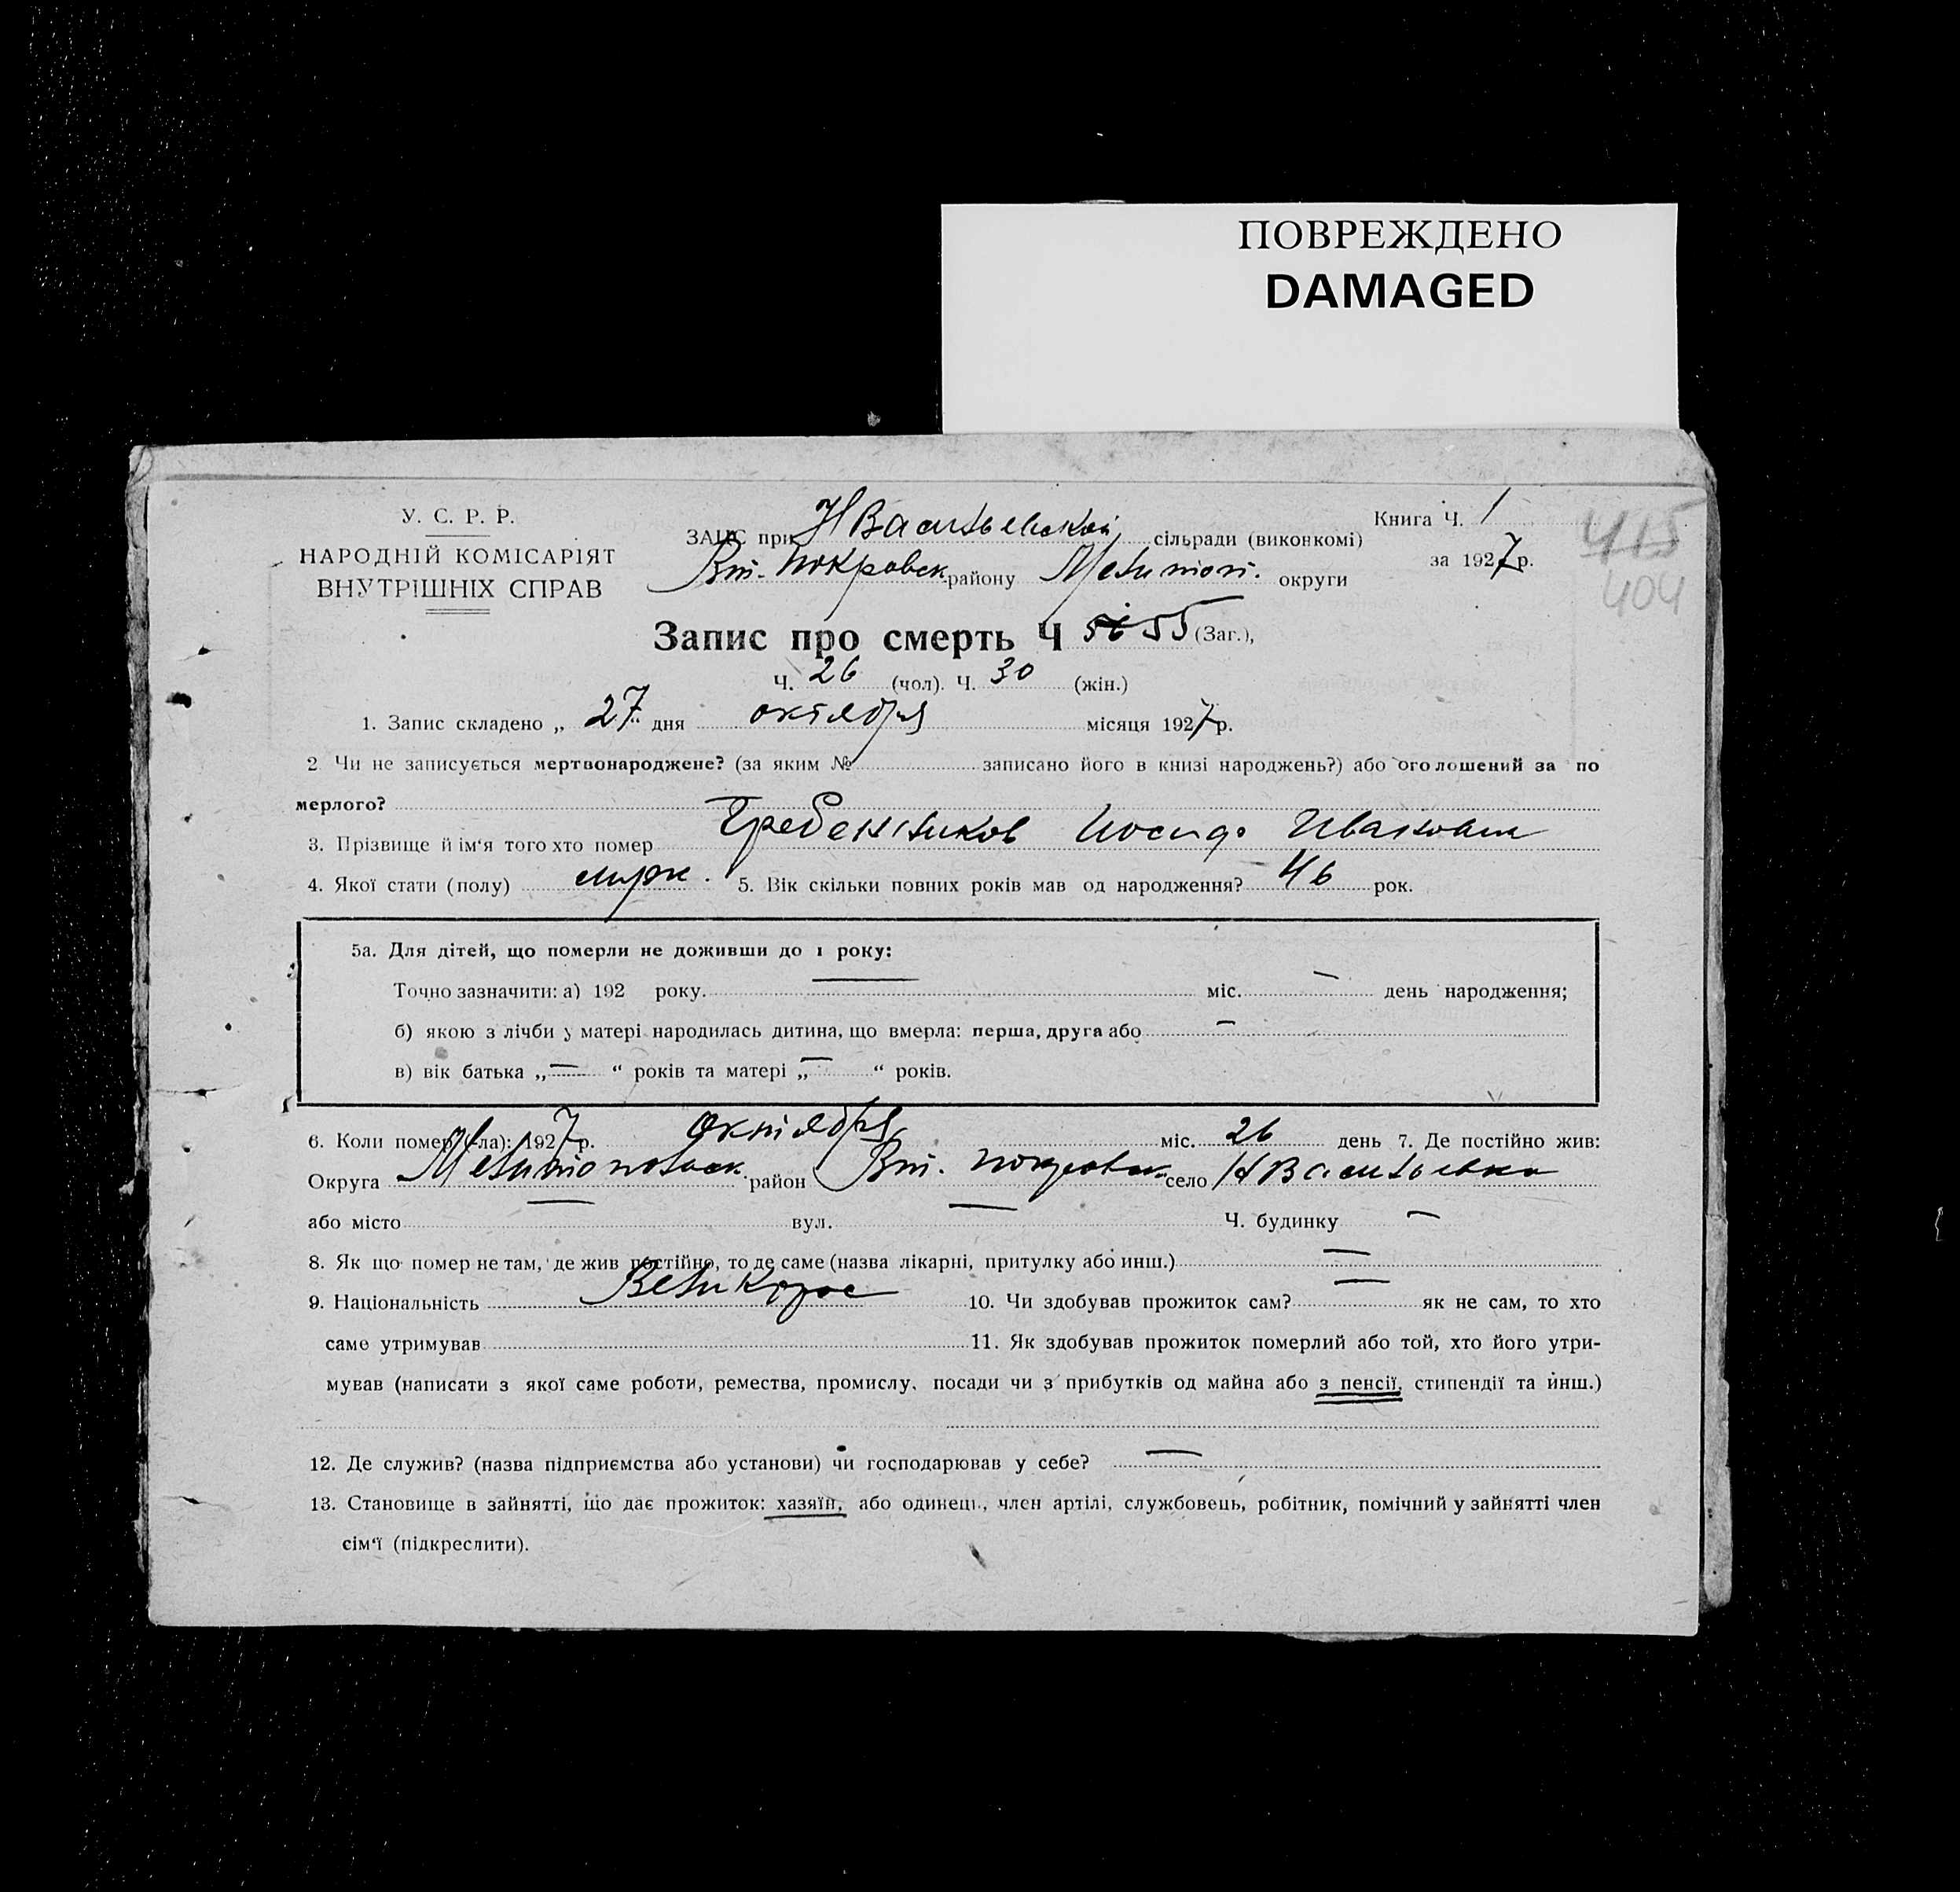 ПОВРЕЖДЕНО
DAMAGED
У. С. Р. Р.
НАРОДНІЙ КОМІСАРІЯТ
ВНУТРІШНІХ СПРАВ
ЗАПС при НВасильевской сільради (виконкомі)
Вт. Покровск району Мелитоп. округи
Книга Ч. 1
за 1927 р.
415
404
Запис про смерть Ч 55 (Заг.),
Ч. 26 (чол). Ч. 30 (жін.)
1. Запис складено „ 27 “ дня октября місяця 1927 р.
2 Чи не записується мертвонароджене? (за яким № записано його в книзі народжень?) або оголошений за по
мерлого?
3. Прізвище й ім‘я того хто помер Гребенников Иосиф Иванович
4. Якої стати (полу) мурж. 5. Вік скільки повних років мав од народження? 46 рок.
5а. Для дітей, що померли не доживши до 1 року:
Точно зазначити: а) 192 року. — міс. — день народження;
б) якою з лічби у матері народилась дитина, що вмерла: перша, друга або —
в) вік батька „ — “ років та матері „ — “ років.
6. Коли помер (-ла): 1927 р. Октября міс. 26 день 7. Де постійно жив:
Округа Мелитопольск район Вт. Покровск село НВасильевка
або місто — вул. — Ч. будинку —
8. Як що помер не там, де жив постійно, то де саме (назва лікарні, притулку або инш.) —
9. Національність Великорос 10. Чи здобував прожиток сам? — як не сам, то хто
саме утримував 11. Як здобував прожиток померлий або той, хто його утри-
мував (написати з якої саме роботи, ремества, промислу, посади чи з прибутків од майна або з пенсії, стипендії та инш.)
12. Де служив? (назва підприємства або установи) чи господарював у себе? —
13. Становище в зайнятті, що дає прожиток: хазяїн, або одинець, член артілі, службовець, робітник, помічний у зайнятті член
сім‘ї (підкреслити).